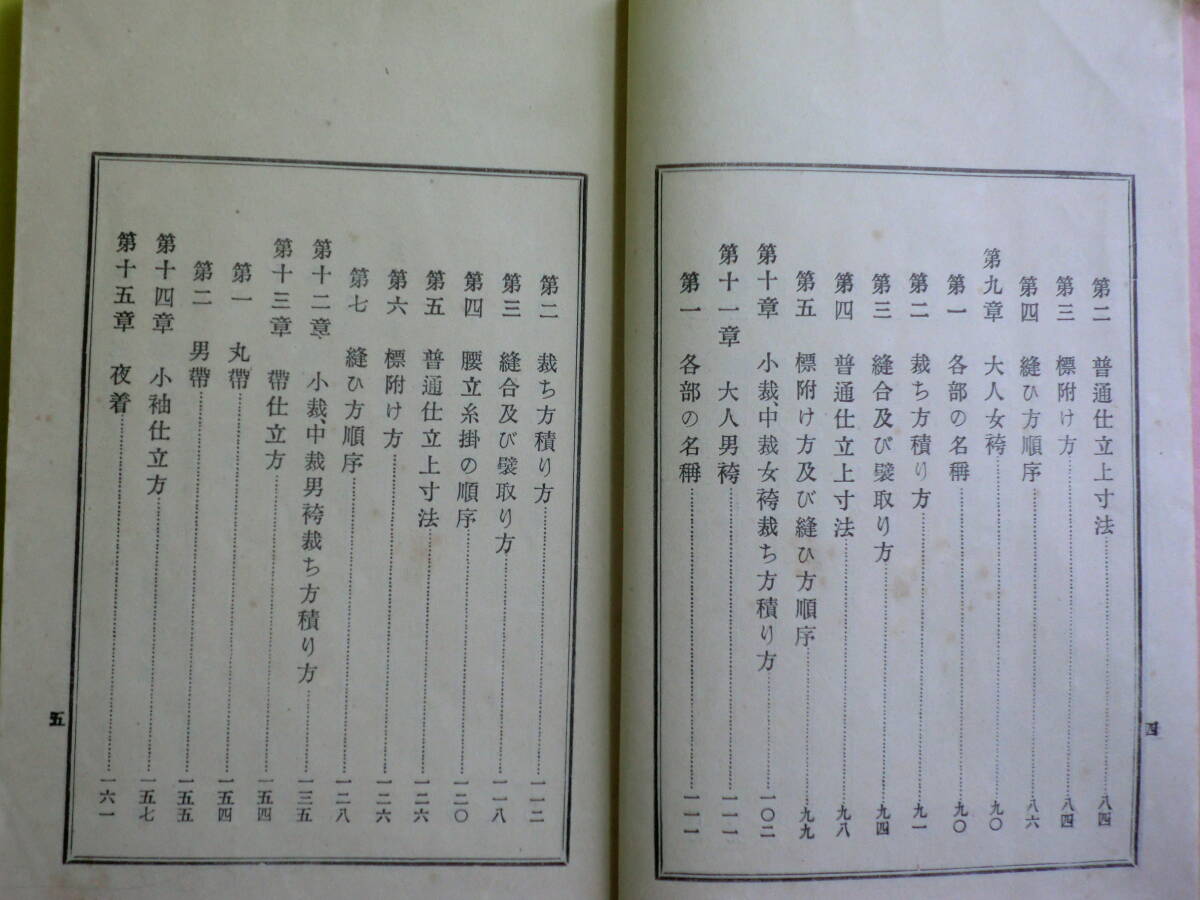 第二　普通仕立上寸法…………八四
第三　標附け方…………八四
第四　縫ひ方順序…………八六
第九章　大人女袴…………九〇
第一　各部の名稱…………九〇
第二　裁ち方積り方…………九一
第三　縫合及び襞取り方…………九四
第四　普通仕立上寸法…………九八
第五　標附け方及び縫ひ方順序…………九九
第十章　小裁、中裁女袴裁ち方積り方…………一〇二
第十一章　大人男袴…………一一一
第一　各部の名稱…………一一一
四
第二　裁ち方積り方…………一一二
第三　縫合及び襞取り方…………一一八
第四　腰立糸掛の順序…………一二〇
第五　普通仕立上寸法…………一二六
第六　標附け方…………一二六
第七　縫ひ方順序…………一二八
第十二章　小裁、中裁男袴裁ち方積り方…………一三五
第十三章　帶仕立方…………一五四
第一　丸帶…………一五四
第二　男帶…………一五五
第十四章　小袖仕立方…………一五七
第十五章　夜着…………一六一
五